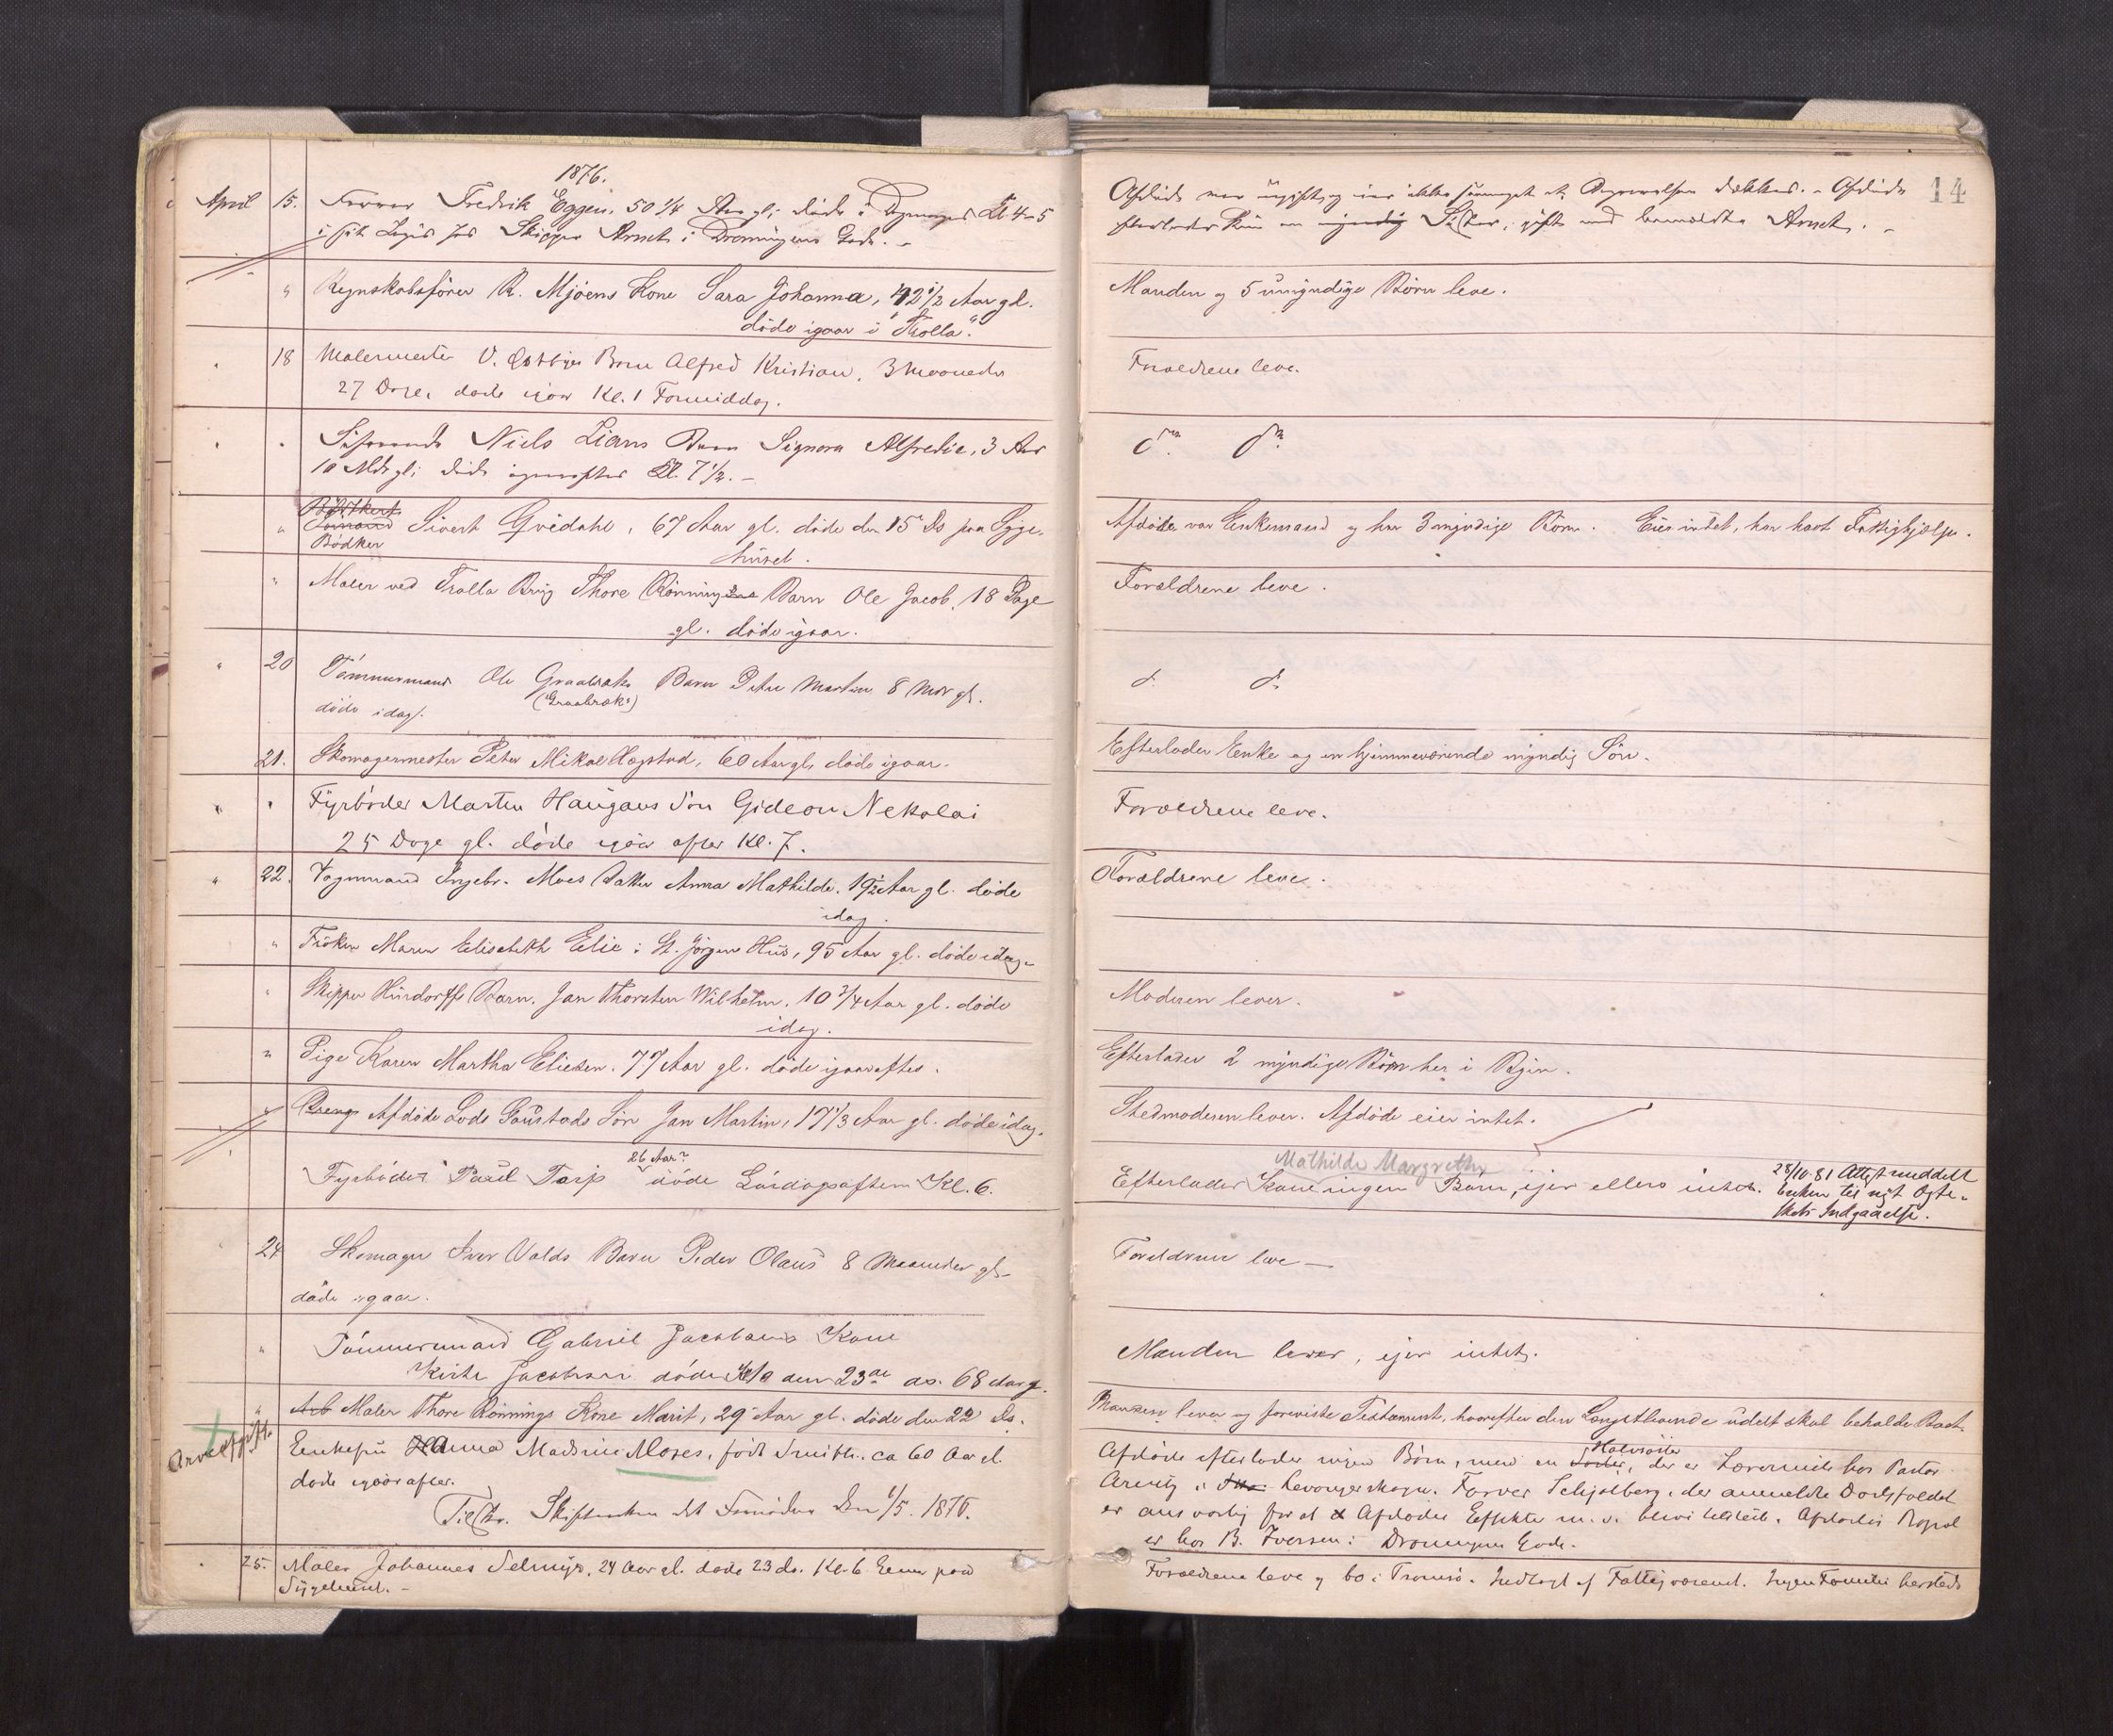 1876.
14
April 15. Farver Fredrik Eggen, 50 1/4 Aar gl; døde i Kl 4-5
i sit Logis hos Skipper Arnet i Dronningens Gade. -
Afdøde var ugift, og - Afdøde
efterlader kun en myndig Søster, gift med bemeldte Arnet. -
" Regnskabsfører R. Mjøens Kone Sara Johanna, 42 1/2 Aar gl.
døde igaar i "Trolla".
Manden og 5 umyndige Børn leve.
18 Malermester O. Barn Alfred Kristian, 3 Maaneder
27 Dage, døde igaar Kl. 1 Formiddag.
Forældrene leve.
Niels Lians Barn Signora Alfredie, 3 Aar
10 Mdr gl; døde igaaraftes Kl. 7 1/2. -
do. do.
Bødker
" Sivert Gvidahl, 67 Aar gl. døde den 15 Ds paa Syge-
huset.
Afdøde var Enkemand og har 3 myndige Børn. Eier intet, har havt Fattighjælp.
" Maler ved Trolla Brug Thore Rønnings Barn Ole Jacob, 18 Dage
gl. døde igaar.
Forældrene leve.
" 20 Tømmermand Ole Graabræks Barn Petra Martin 8 Mdr gl.
(Graabræks)
døde idag.
d. d.
21. Skomagermester Peter Mikal Hagstad, 60 Aar gl, døde igaar.
Efterlader Enke og en hjemmeværende myndig Søn.
" " Fyrbøder Martin Haugans Søn Gideon Nekolai
25 Dage gl. døde igaar after Kl. 7.
Forældrene leve.
" 22. Vognmand Ingebr. Moes Datter Anna Mathilde. 19 1/2 Aar gl. døde
idag.
Forældrene leve.
" Frøken Maren Elisabeth Elie i St. Jørgens Hus, 95 Aar gl. døde idag.
" Skipper Hirsdorffs Barn. Jan Thorsten Wilhelm. 10 3/4 Aar gl. døde
idag.
Moderen lever.
" Pige Karen Martha Eliesen. 77 Aar gl. døde igaaraftes.
Efterlader 2 myndige Børn her i Byen.
" Dreng Afdøde Lods Gaustads Søn Jan Martin, 17 1/3 Aar gl. døde idag.
Stedmoderen lever. Afdøde eier intet.
Fyrbøder Paul Tarp 26 Aar? døde Lørdagsaften Kl. 6.
Mathilde Margrethe
Efterlader Kone ingen Børn, ejer ellers intet.
28/10 81 Attest meddelt
Enken til nyt Ægte-
skabs Indgaaelse.
24 Skomager Iver Valds Barn Peder Olaus 8 Maaneder gl-
døde igaar.
Forældrene leve -
" Tømmermand Gabriel Jacobsens Kone
Kirste Jacobsen døde den 23de ds. 68 Aar g.
Manden lever, ejer intet.
" Arb Maler Thore Rønnings Kone Marit, 29 Aar gl. døde den 22 Ds.
Manden lever og foreviste Testament, hvorefter den Længstlevende udelt skal beholde Boet.
Arveafgift.
Enkefru Anna Madsine Moses, født Smith. ca 60 Aar gl.
døde igaar after.
Afdøde efterlader ingen Børn, men en Søster, Halvsøster der er Lærerinde hos Pastor
Arentz i Levangerskogn. Farver Schjølberg, der anmeldte Dødsfaldet
er ansvarlig for at Afdødes Effekter m. v. Afdødes Bopæl
er hos B. Iversen i Dronningens Gade.
Til hr. Skifteretten det Fornødne den 1/5. 1876.
25. Maler Johannes Selmyr, 24 Aar gl. døde 23 ds. Kl. 6 Em paa
Sygehuset. -
Forældrene leve og bo i Tromsø. Indlagt af Fattigvæsenet. Ingen Familie hersteds